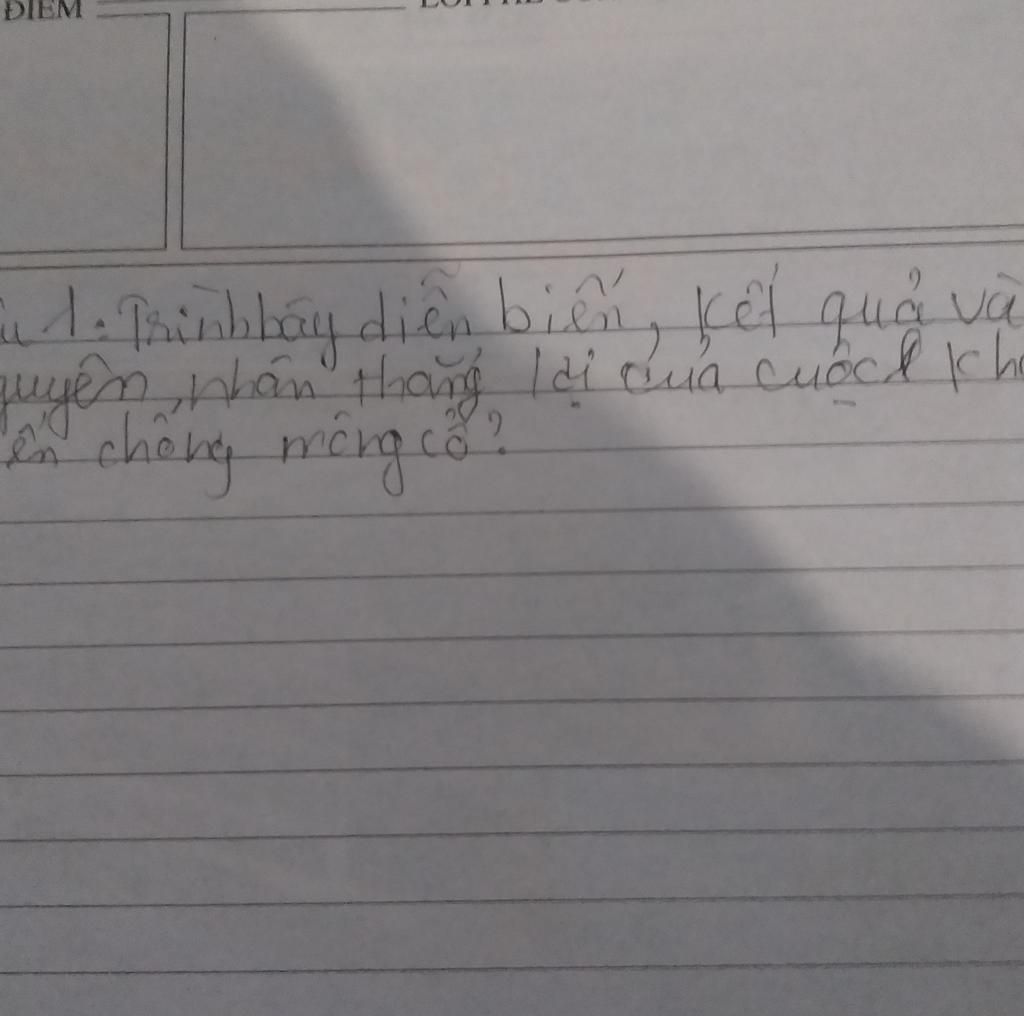 ĐIỂM
u 1: Trình bày diễn biến, kết quả và
guyên, nhân thắng lợi của cuộc kh
ến chống mông cổ?